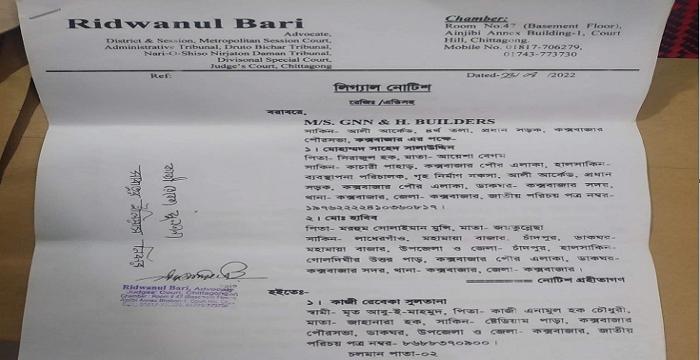 Ridwanul Bari
Advocate,
District & Session, Metropolitan Session Court,
Administrative Tribunal, Druto Bichar Tribunal,
Nari-O-Shiso Nirjaton Daman Tribunal,
Divisonal Special Court,
Judge's Court, Chittagong
Chamber:
Room No.47 (Basement Floor),
Ainjibi Annex Building-1, Court
Hill, Chittagong.
Mobile No. 01817-706279,
01743-773730
Ref:
Dated- /2022
লিগ্যাল নোটিশ
রেজিঃ/এডিসহ
বরাবরে,
M/S. GNN & H. BUILDERS
সাকিন- আলী আর্কেড, ৪র্থ তলা, প্রধান সড়ক, কক্সবাজার
পৌরসভা, কক্সবাজার এর পক্ষে-
১। মোহাম্মদ সাহেদ সালাউদ্দিন
পিতা- সিরাজুল হক, মাতা- আয়েশা বেগম
সাকিন- কাচারী পাহাড়, কক্সবাজার পৌর এলাকা, হালসাকিন-
ব্যবস্থাপনা পরিচালক, গৃহ নির্মাণ সকসা, আলী আর্কেড, প্রধান
সড়ক, কক্সবাজার পৌর এলাকা, ডাকঘর- কক্সবাজার সদর,
থানা- কক্সবাজার, জেলা- কক্সবাজার, জাতীয় পরিচয় পত্র নম্বর-
১৯৭৬২২২৪১০৩৬০৮১৭।
২। মোঃ হাবিব
পিতা- মরহুম সোলাইমান মুন্সি, মাতা-
সাকিন- মহামায়া বাজার, চাঁদপুর, ডাকঘর-
মহামায়া বাজার, উপজেলা ও জেলা- চাঁদপুর, হালসাকিন-
গোলদিঘীর উত্তর পাড়, কক্সবাজার পৌর এলাকা, ডাকঘর-
কক্সবাজার সদর, থানা- কক্সবাজার, জেলা- কক্সবাজার।
নোটিশ গ্রহীতাগণ
Ridwanul Bari, Advocate
Judges' Court, Chittagong
হইতেঃ-
১। কাজী রেবেকা সুলতানা
স্বামী- মৃত আবু-ই-মাহমুদ, পিতা- কাজী এনামুল হক চৌধুরী,
মাতা- জাহানারা হক, সাকিন- ষ্টেডিয়াম পাড়া, কক্সবাজার
পৌরসভা, ডাকঘর, উপজেলা ও জেলা- কক্সবাজার, জাতীয়
পরিচয় পত্র নম্বর- ৮৬৮৮৩৭০৯০০।
চলমান পাতা-০২